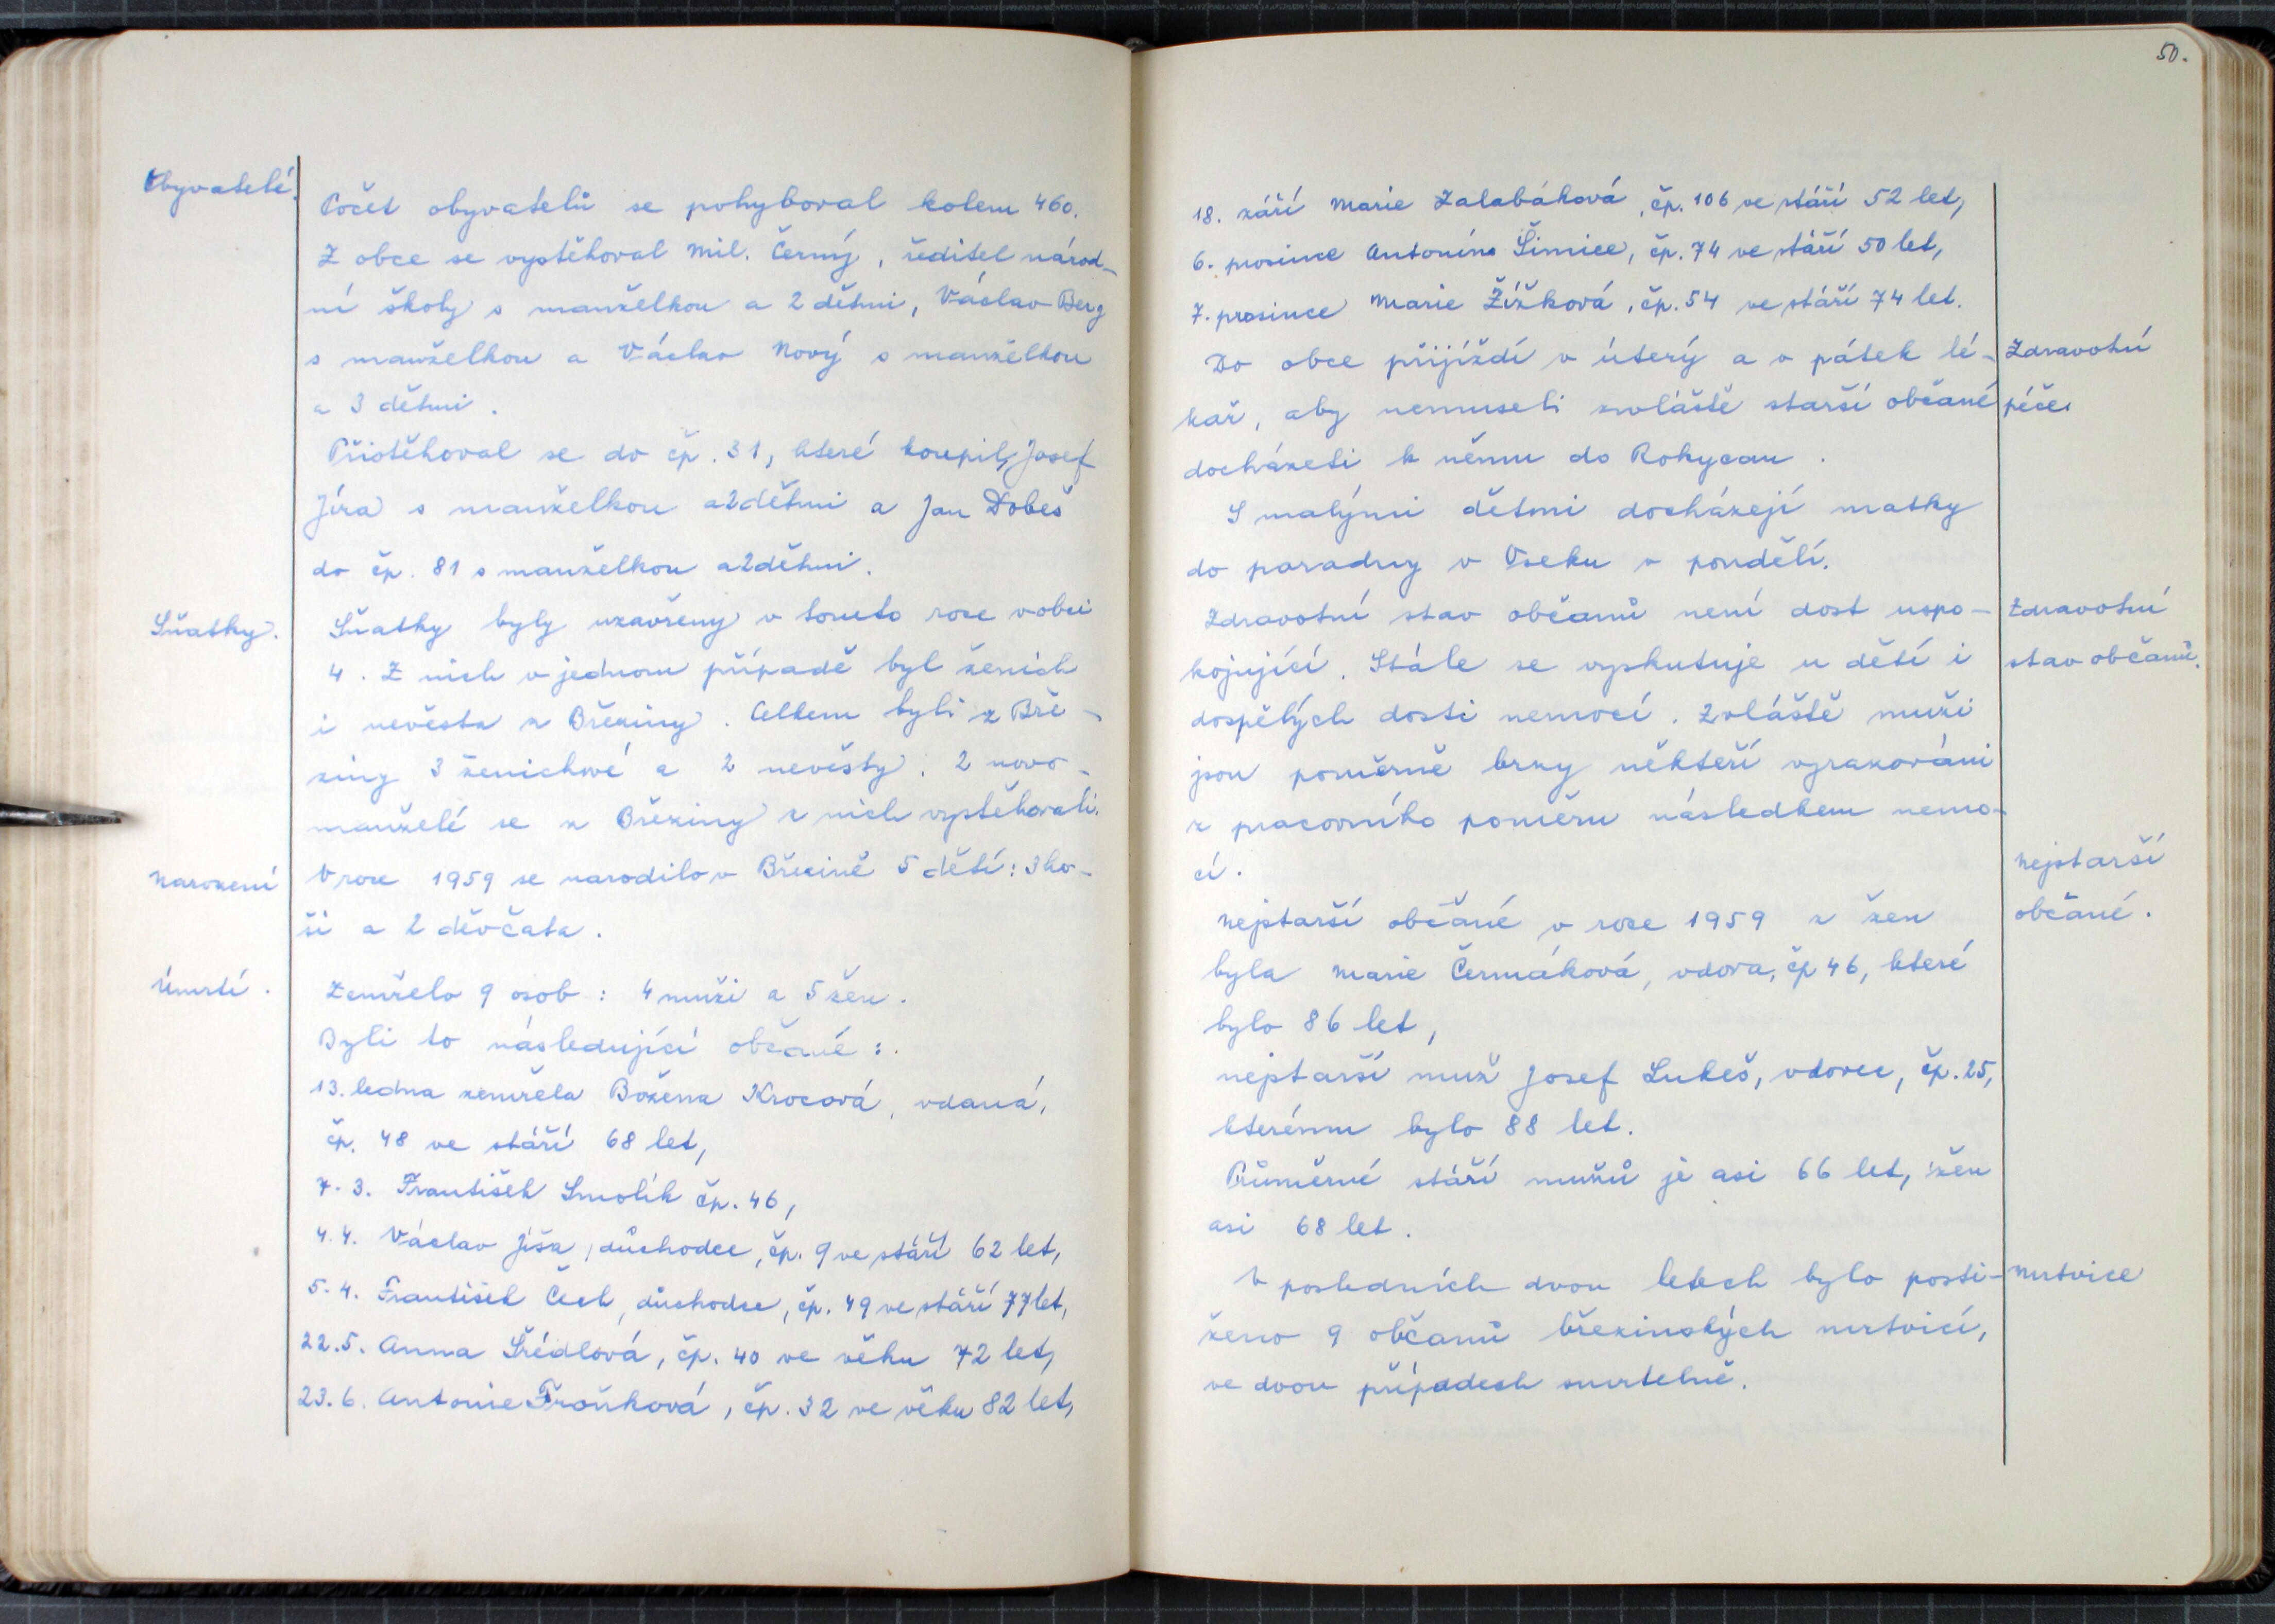 Obyvatelé.
Počet obyvatelů se pohyboval kolem 460.
Z obce se vystěhoval Mil. Černý, ředitel národ-
ní školy s manželkou a 2 dětmi, Václav Berg
s manželkou a Václav Nový s manželkou
a 3 dětmi.
Přistěhoval se do čp. 31, které koupil, Josef
Jíra s manželkou a 2 dětmi a Jan Dobeš
do čp. 81 s manželkou a 2 dětmi.
Sňatky.
Sňatky byly uzavřeny v tomto roce v obci
4. Z nich v jednom případě byl ženich
i nevěsta z Březiny. Celkem byli z Bře-
ziny 3 ženichové a 2 nevěsty. 2 novo-
manželé se z Březiny z nich vystěhovali.
Narození
V roce 1959 se narodilo v Březině 5 dětí: 3 ho-
ši a 2 děvčata.
Úmrtí.
Zemřelo 9 osob: 4 muži a 5 žen.
Byli to následující občané:
13. ledna zemřela Božena Krocová, vdaná,
čp. 48 ve stáří 68 let,
7. 3. František Smolík čp. 46,
4. 4. Václav Jíša, důchodce, čp. 9 ve stáří 62 let,
5. 4. František Čech, důchodce, čp. 49 ve stáří 77 let,
22. 5. Anna Šrédlová, čp. 40 ve věku 72 let,
23. 6. Antonie Froňková, čp. 32 ve věku 82 let,
50.
18. září Marie Zalabáková, čp. 106 ve stáří 52 let,
6. prosince Antonín Šimice, čp. 74 ve stáří 50 let,
7. prosince Marie Žížková, čp. 54 ve stáří 74 let.
Zdravotní
péče.
Do obce přijíždí v úterý a v pátek lé-
kař, aby nemuseli zvláště starší občané
docházeti k němu do Rokycan.
S malými dětmi docházejí matky
do poradny v Oseku v pondělí.
Zdravotní
stav občanů.
Zdravotní stav občanů není dost uspo-
kojující. Stále se vyskutuje u dětí i
dospělých dosti nemocí. Zvláště muži
jsou poměrně brzy někteří vyrazováni
z pracovního poměru následkem nemo-
cí.
Nejstarší
občané.
Nejstarší občané v roce 1959 z žen
byla Marie Čermáková, vdova, čp 46, které
bylo 86 let,
nejstarší muž Josef Lukeš, vdovec, čp. 25,
kterému bylo 88 let.
Průměrné stáří mužů je asi 66 let, žen
asi 68 let.
Mrtvice
V posledních dvou letech bylo posti-
ženo 9 občanů březinských mrtvicí,
ve dvou případech smrtelně.